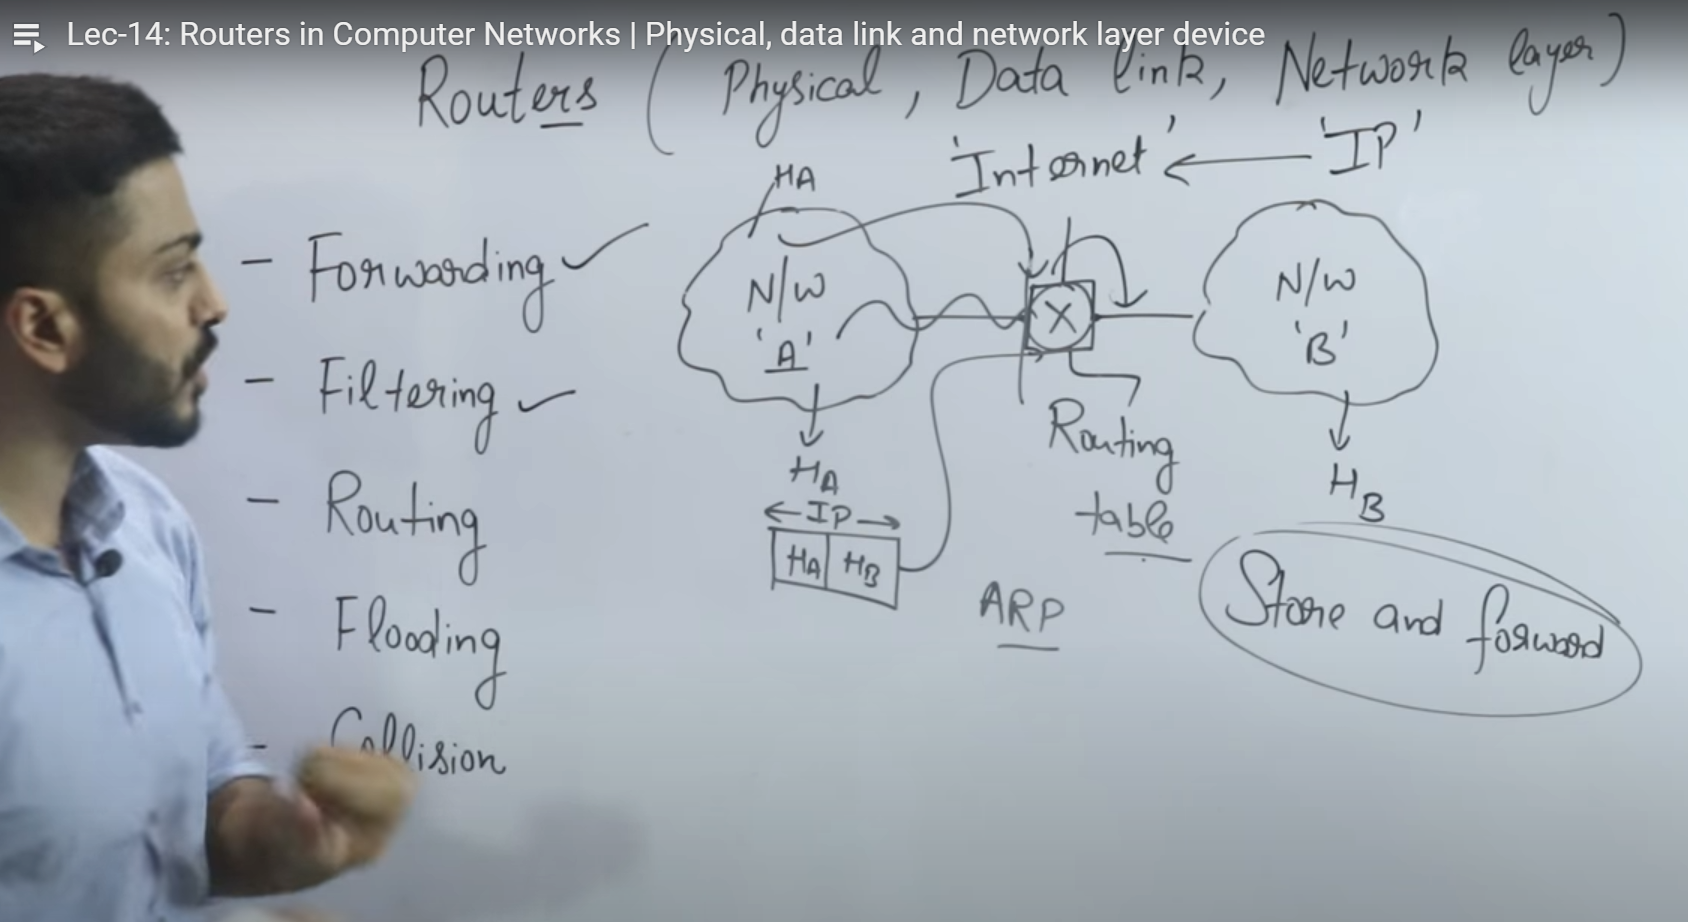 Lec-14: Routers in Computer Networks | Physical, data link and network layer device
Routers ( Physical, Data link, Network layer)
'Internet' ← 'IP'
HA
- Forwarding ✓
- Filtering ✓
- Routing
- Flooding
- Collision
N/W
'A'
X
N/W
'B'
HA
← IP →
HA HB
Routing
table
ARP
HB
Store and forward